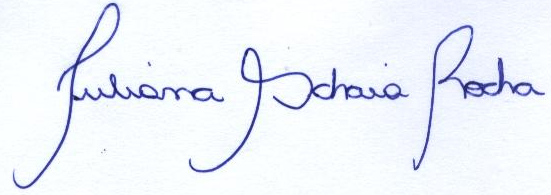 Juliana Schaia Rocha